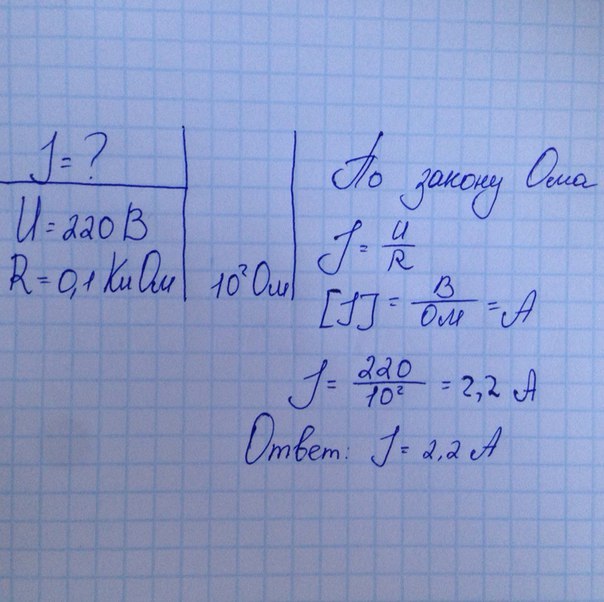 J = ?
U = 220 В
R = 0,1 КиОм
10² Ом
По закону Ома
J = U/R
[J] = В/Ом = А
J = 220/10² = 2,2 А
Ответ: J = 2,2 А